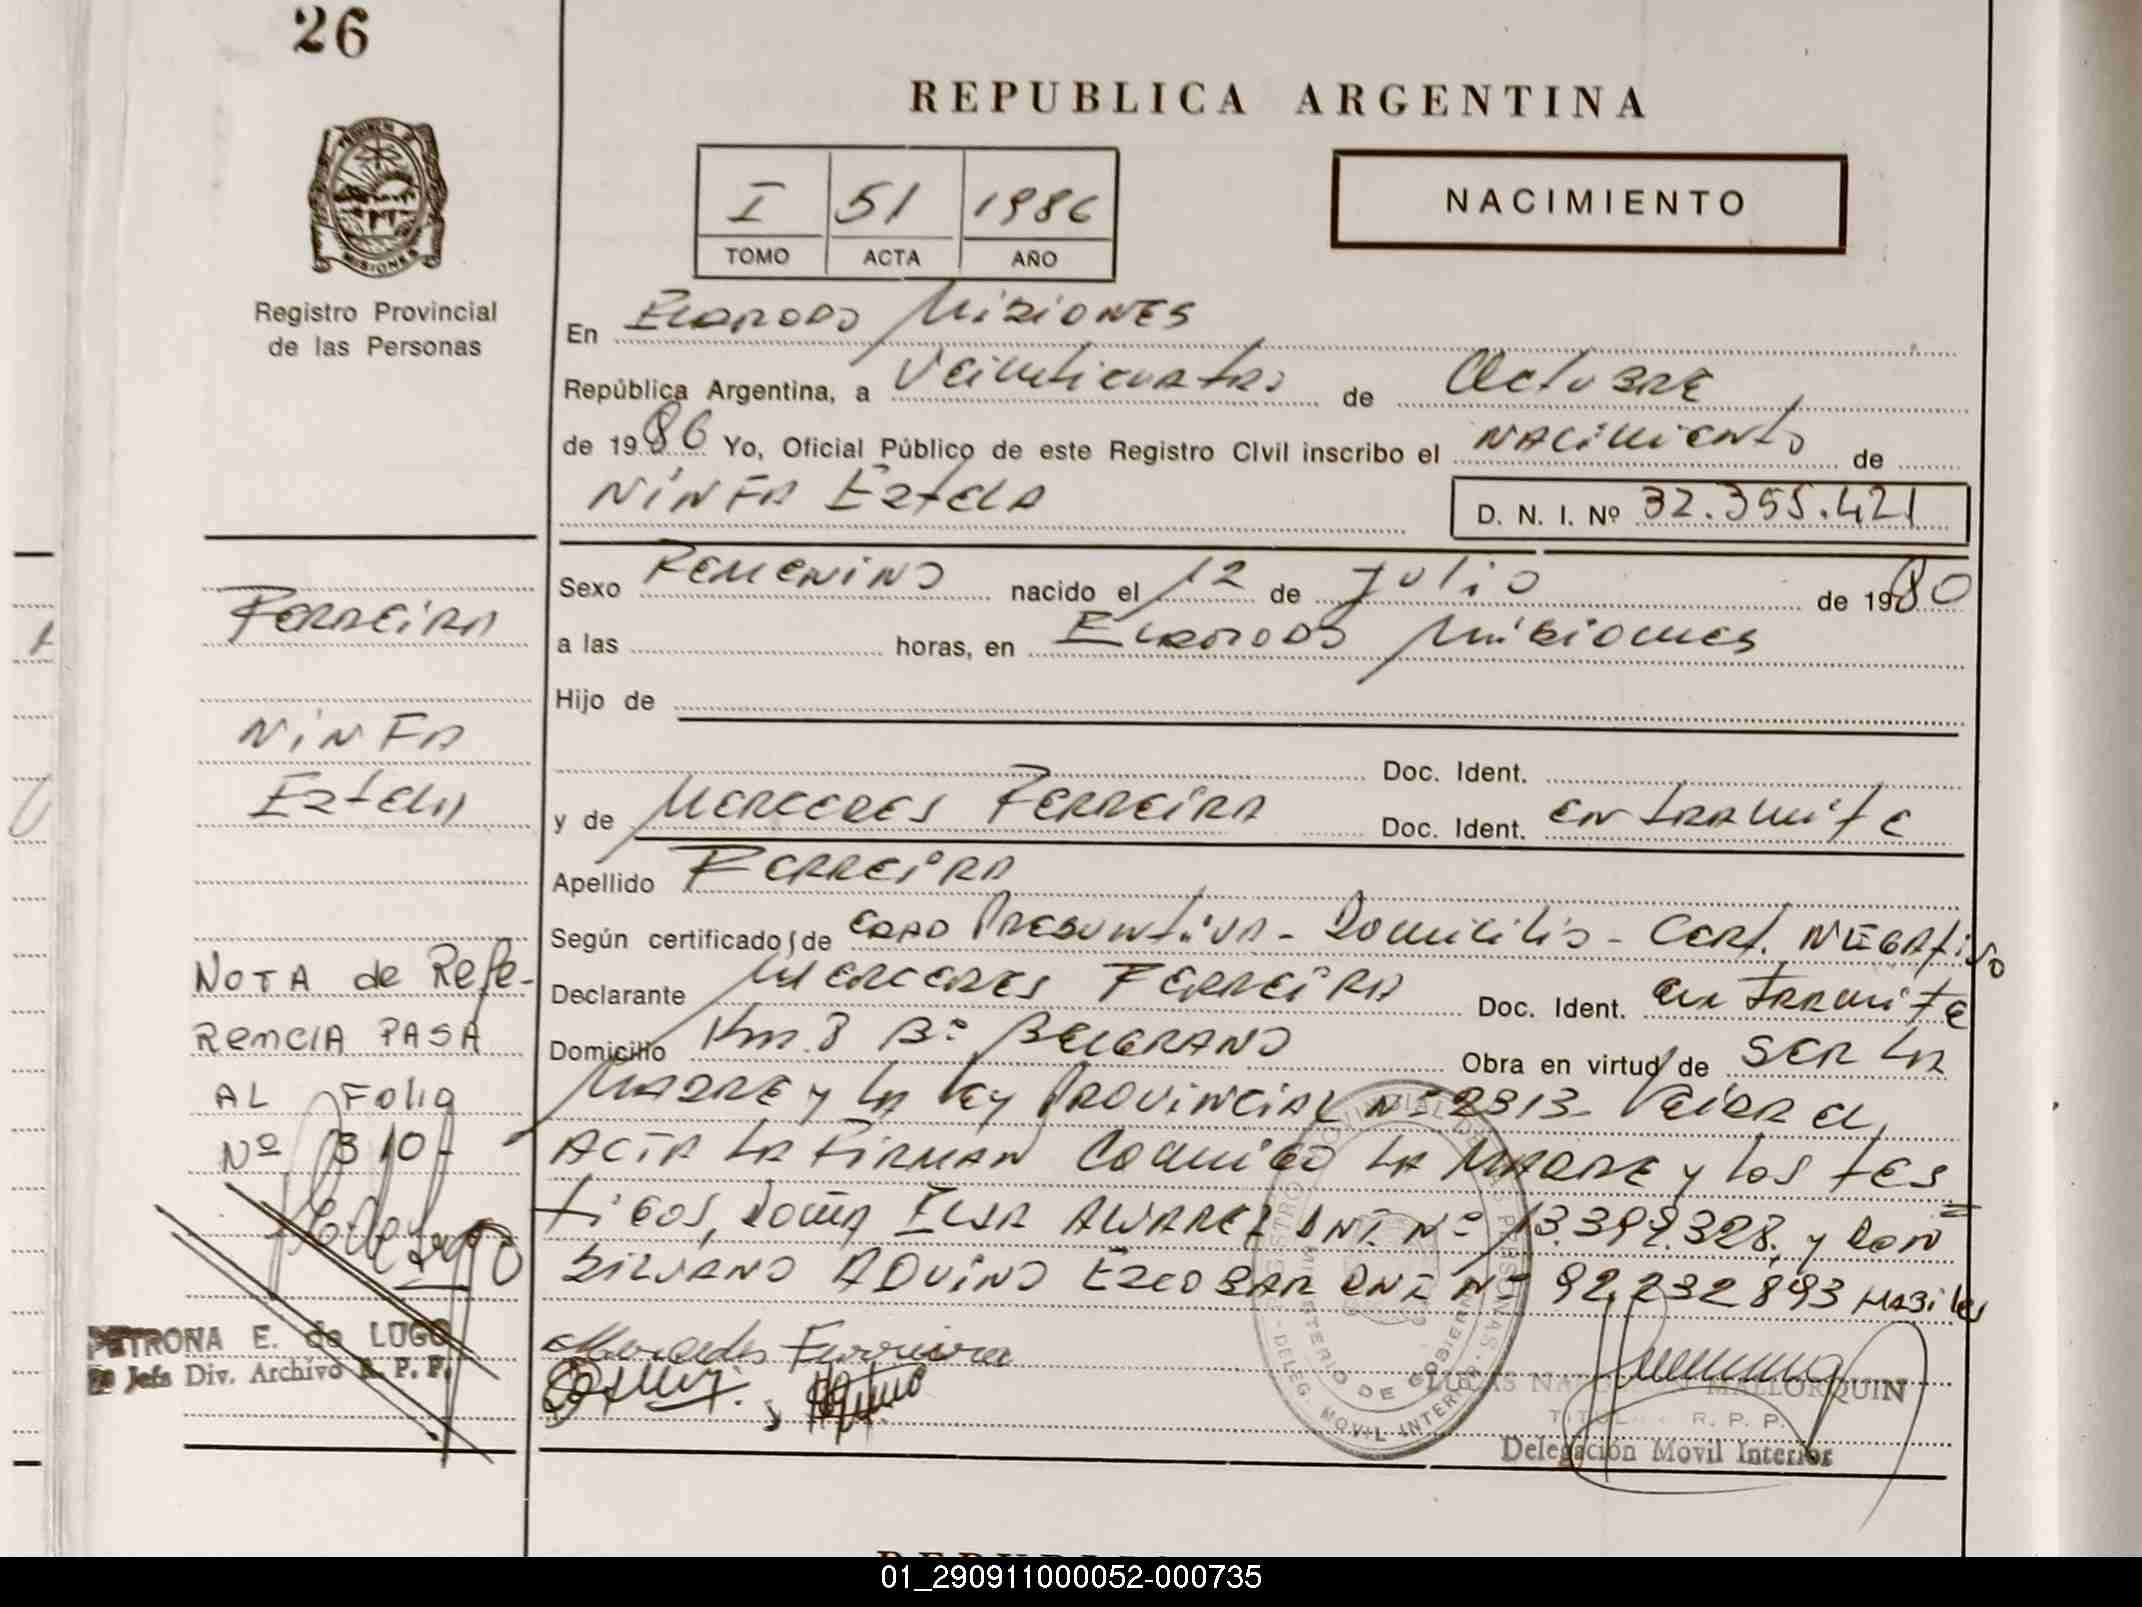 26
REPUBLICA ARGENTINA
I 51 1986
TOMO ACTA AÑO
NACIMIENTO
MISIONES
Registro Provincial
de las Personas
En Eldorado Misiones
República Argentina, a Veinticuatro de Octubre
de 1986 Yo, Oficial Público de este Registro Civil inscribo el nacimiento de
Ninfa Estela
D. N. I. Nº 32.355.421
Sexo Femenino nacido el 12 de Julio de 1980
a las horas, en Eldorado Misiones
Hijo de
Doc. Ident.
y de Mercedes Ferreira Doc. Ident. en tramite
Apellido Ferreira
Según certificado de edad Presuntiva - Domicilio - Cert. Negativo
Declarante Mercedes Ferreira Doc. Ident. en tramite
Domicilio Km. 8 Bº Belgrano Obra en virtud de ser la
Madre y la ley Provincial Nº 2313- Leida el
Acta la Firman conmigo la Madre y los tes
tigos, doña Elsa Alvarez DNI Nº y don
Silvano Aquino Escobar DNI Nº 92.232893 habiles
Ferreira
Ninfa
Estela
NOTA de Refe-
RenciA PASA
AL Folio
Nº 310-
PETRONA E. de LUGO
Jefa Div. Archivo R. P. P.
Mercedes Ferreira
MALLORQUIN
R. P. P.
Delegación Movil Interior
01_290911000052-000735